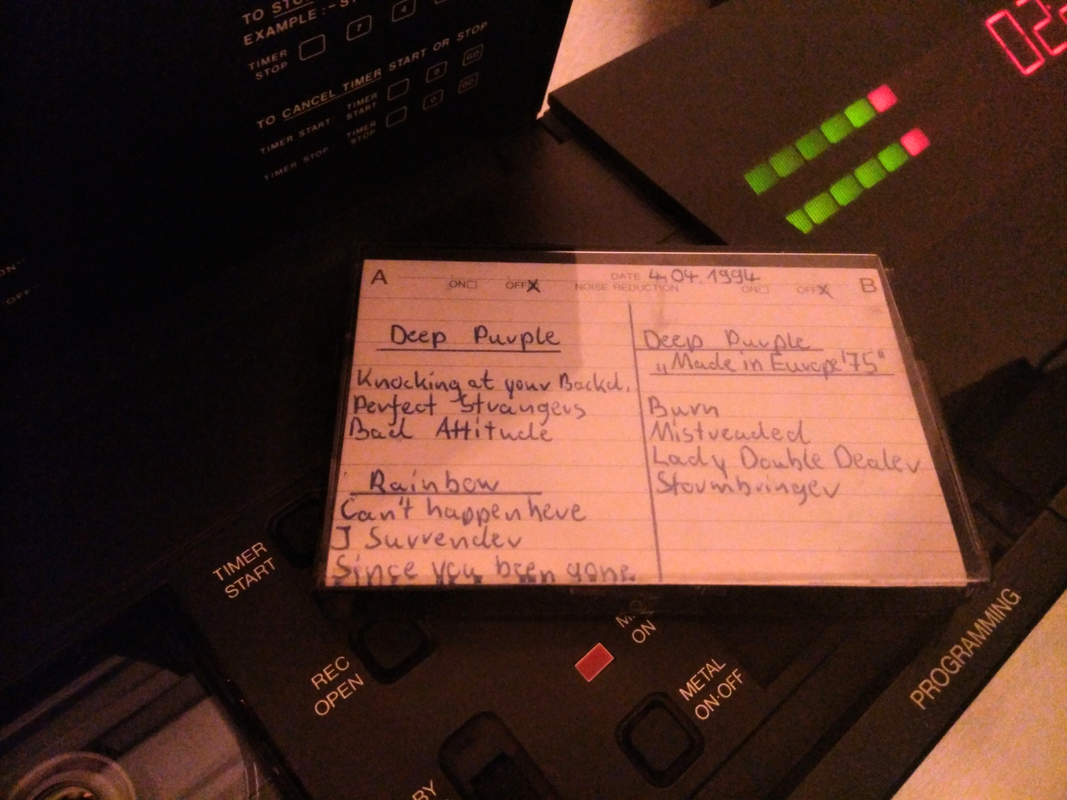 TO STO
EXAMPLE:- ST
TIMER STOP 7 4
TO CANCEL TIMER START OR STOP
TIMER START TIMER START 0 GO
TIMER STOP TIMER STOP 0 GO
02:
OFF
A
ON OFF X
DATE 4.04.1994
NOISE REDUCTION
ON OFF X
B
Deep Purple
Knocking at your Backd.
Perfect Strangers
Bad Attitude
Rainbow
Can't happen here
I Surrender
Since you been gone
Deep Purple
„Made in Europe '75"
Burn
Mistreaded
Lady Double Dealer
Stormbringer
TIMER
START
REC
OPEN
ON
METAL
ON-OFF
PROGRAMMING
BY